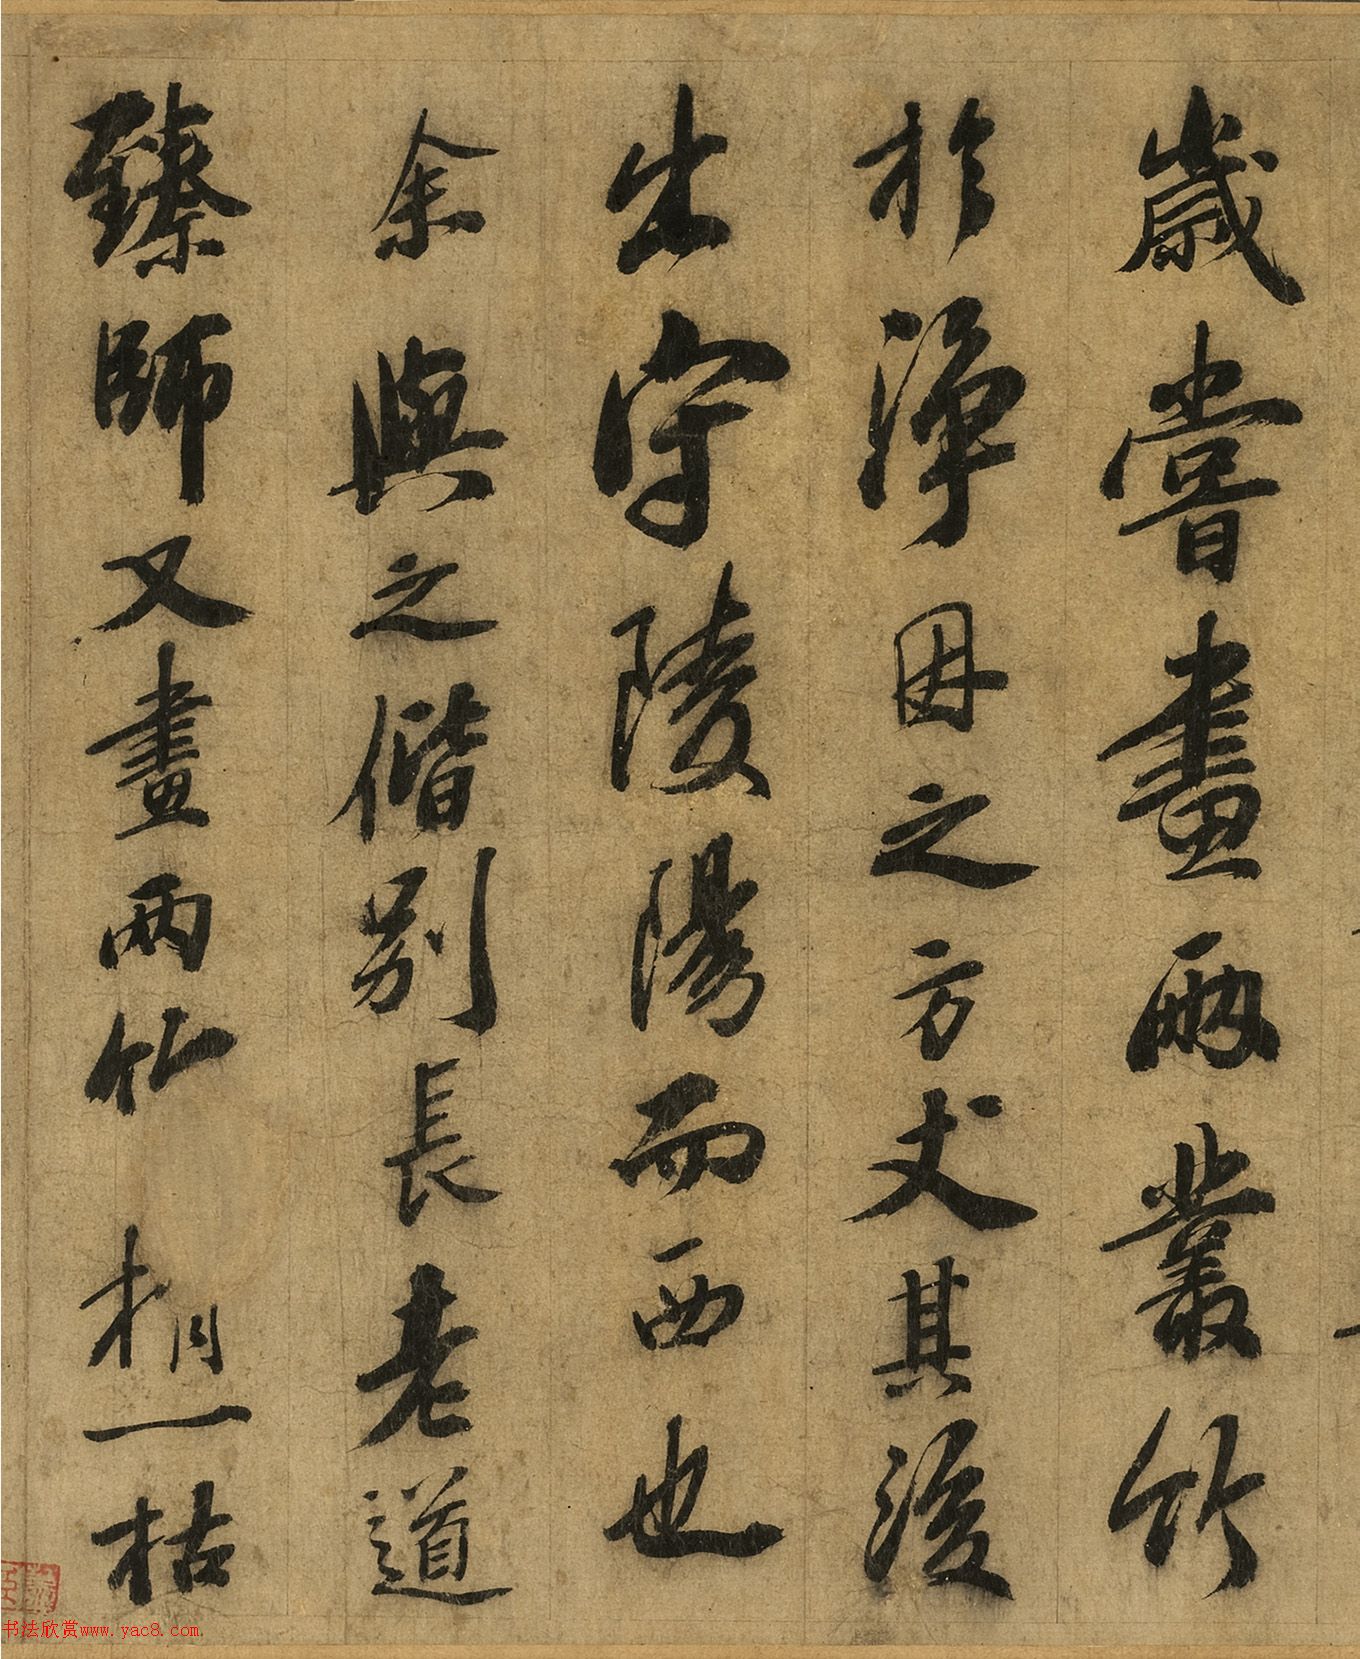 歲嘗畫兩叢竹
於淨因之方丈其後
出守陵陽而西也
余與之偕別長老道
臻師又畫兩竹梢一枯
书法欣赏www.yac8.com.